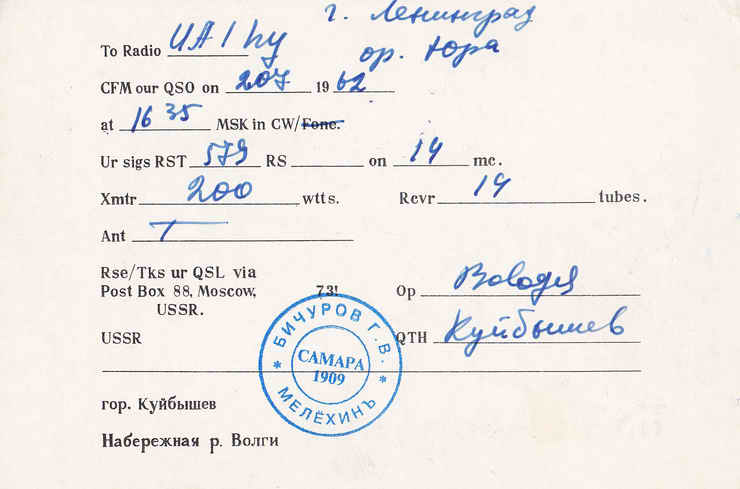 г. Ленинград
To Radio UA1hy ор. Юра
CFM our QSO on 207 1962
at 16 35 MSK in CW/Fone.
Ur sigs RST 579 RS on 14 mc.
Xmtr 200 wtts. Rcvr 14 tubes.
Ant T
Rse/Tks ur QSL via
Post Box 88, Moscow, 73! Op
USSR.
USSR QTH Куйбышев
БИЧУРОВ Г. В.
САМАРА
1909
МЕЛЁХИНЪ
гор. Куйбышев
Набережная р. Волги